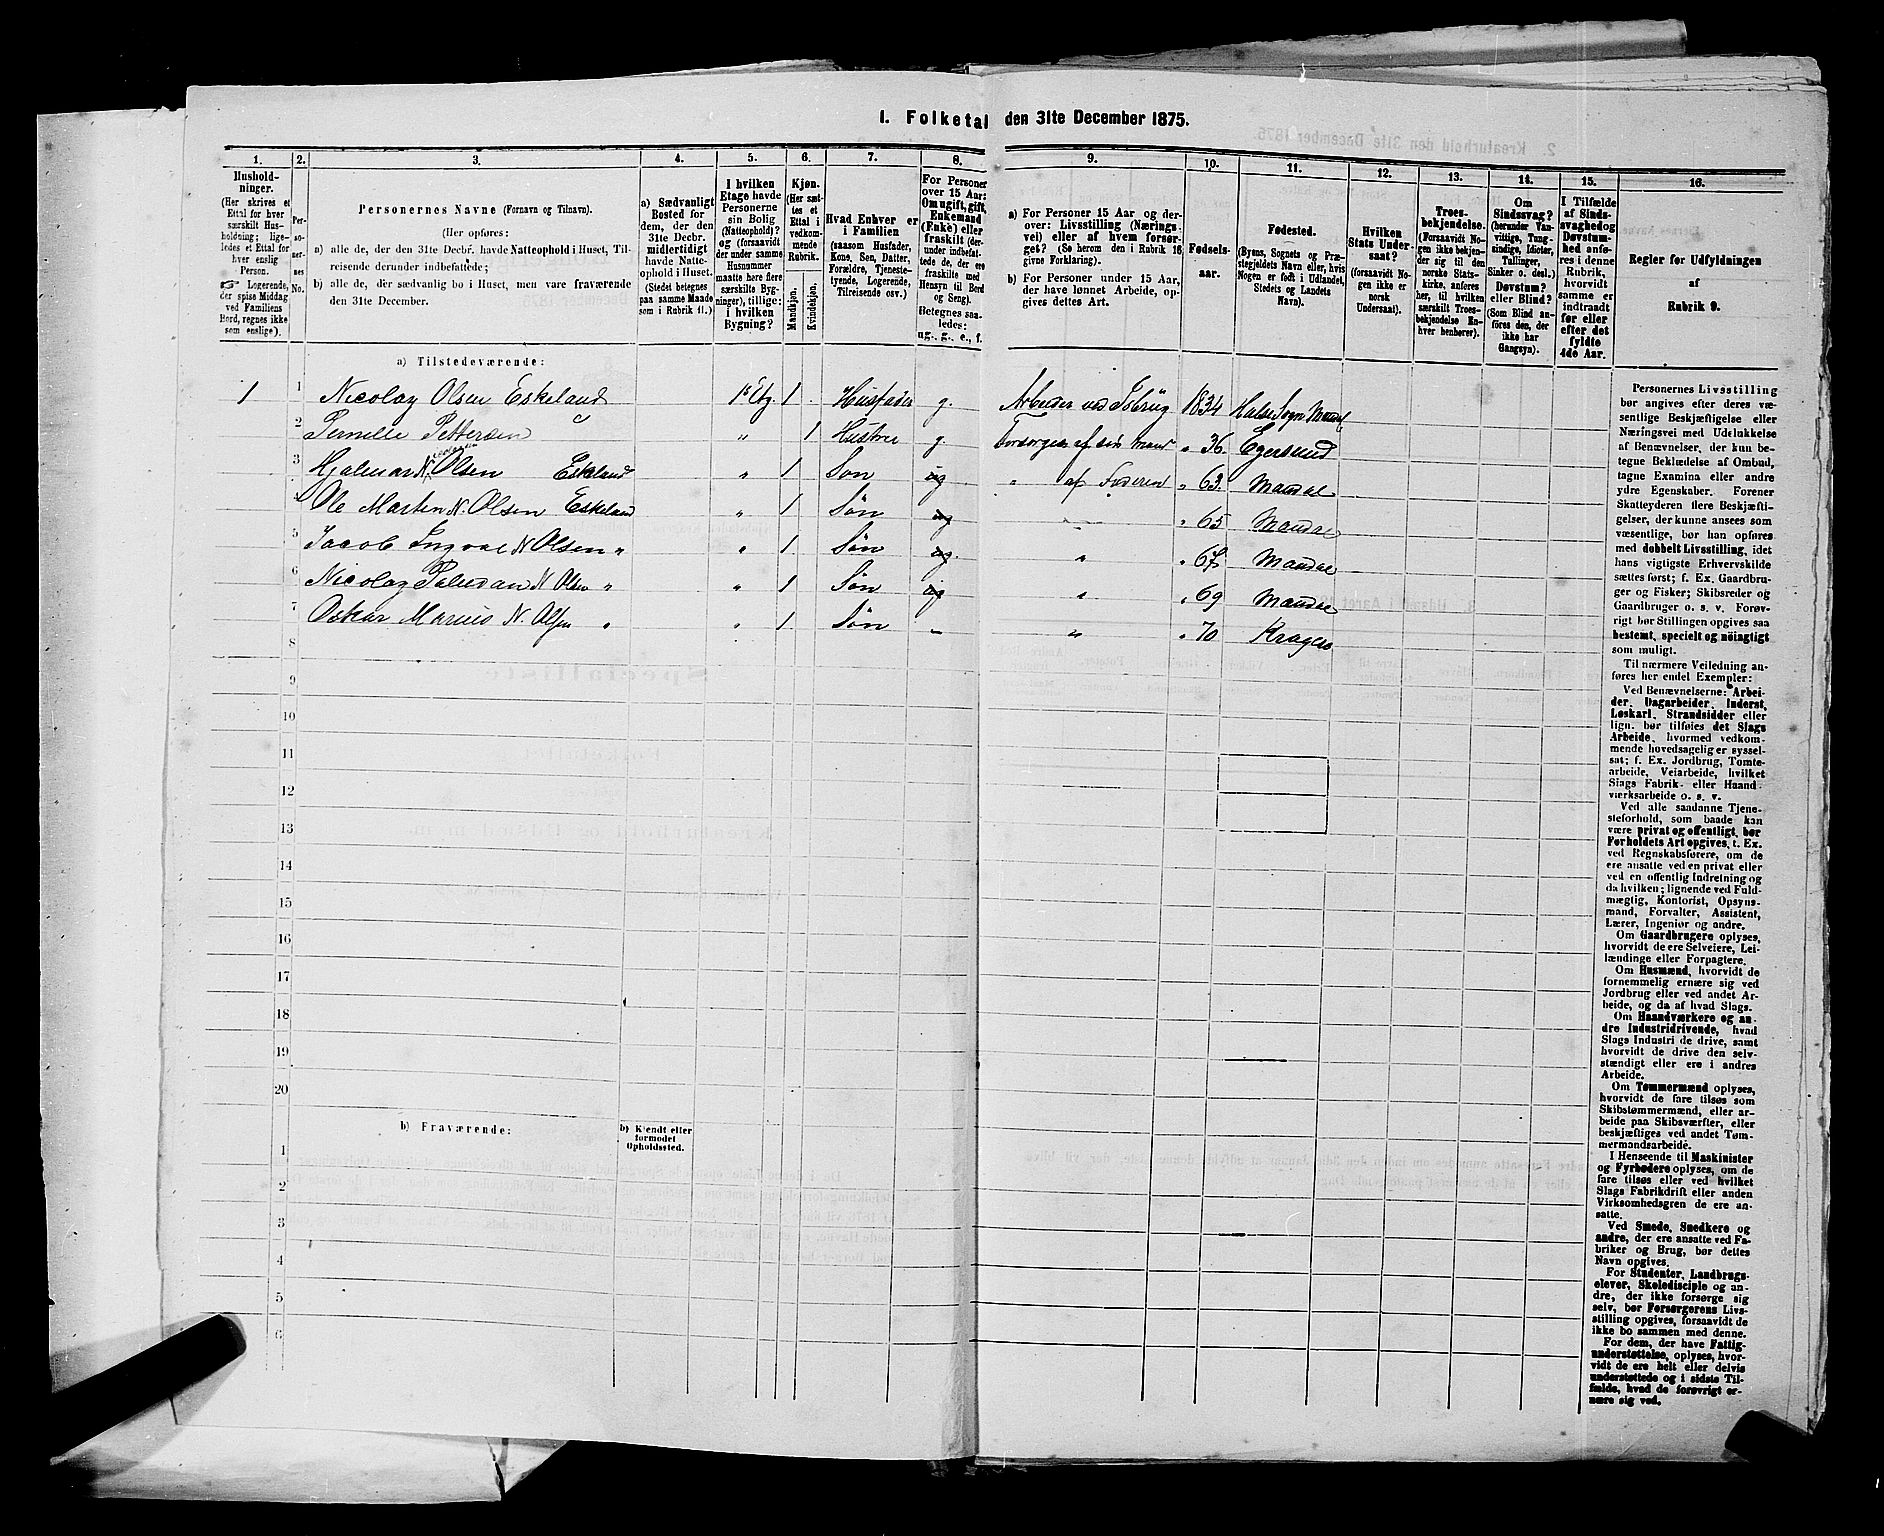 1. Folketal den 31te December 1875.
1. 2. 3. 4. 5. 6. 7. 8. 9. 10. 11. 12. 13. 14. 15. 16.
Hushold-
ninger.
(Her skrives et
Ettal for hver
særskilt Hus-
holdning; lige-
ledes et Ettal for
hver enslig
Person.
Logerende,
der spise Middag
ved Familiens
Bord, regnes ikke
som enslige).
Per-
so-
ner-
nes
No.
Personernes Navne (Fornavn og Tilnavn).
(Her opføres:
a) alle de, der den 31te Decbr. havde Natteophold i Huset, Til-
reisende derunder indbefattede;
b) alle de, der sædvanlig bo i Huset, men vare fraværende
den 31te December.
a) Sædvanligt
Bosted for
dem, der den
31te Decbr.
midlertidigt
havde Natte-
ophold i Huset.
(Stedet betegnes
paa samme Maade
som i Rubrik 11.)
I hvilken
Etage havde
Personerne
sin Bolig
(Natteophold)?
og (forsaavidt
der under samme
Husnummer
maatte høre flere
særskilte Byg-
ninger), tillige:
i hvilken
Bygning?
Kjøn.
(Her sæt-
tes et
Ettal i
vedkom-
mende
Rubrik.
Mandkjøn.
Kvindekjøn.
Hvad Enhver er
i Familien
(saasom Husfader,
Kone, Søn, Datter,
Forældre, Tjeneste-
tyende, Logerende,
Tilreisende osv.)
For Personer
over 15 Aar:
Om ugift, gift,
Enkemand
(Enke) eller
fraskilt (der-
under indbefat-
tede de, der ere
fraskilte med
Hensyn til Bord
og Seng).
Betegnes saa-
ledes:
ug., g., e., f.
a) For Personer 15 Aar og der-
over: Livsstilling (Nærings-
vei) eller af hvem forsør-
get? (Se herom den i Rubrik 16
givne Forklaring).
b) For Personer under 15 Aar,
der have lønnet Arbeide, op-
gives dettes Art.
Fødsels-
aar.
Fødested.
(Byens, Sognets og Præ-
stegjeldets Navn eller, hvis
Nogen er født i Udlandet,
Stedets og Landets
Navn).
Hvilken
Stats Under-
saat?
(forsaavidt No-
gen ikke er
norsk
Undersaat).
Troes-
bekjendelse.
(Forsaavidt No-
gen ikke bekjen-
der sig til den
norske Stats-
kirke, anføres
her, til hvilken
særskilt Troes-
bekjendelse En-
hver henhører).
Om
Sindssvag?
(herunder Van-
vittige, Tung-
sindige, Idioter,
Tullinger,
Sinker o. desl.)
Døvstum?
eller Blind?
(Som Blind an-
føres den, der
ikke har
Gangsyn).
I Tilfælde
af Sinds-
svaghed og
Døvstum-
hed anfø-
res i denne
Rubrik,
hvorvidt
samme er
indtraadt
før eller
efter det
fyldte
4de Aar.
Regler for Udfyldningen
af
Rubrik 9.
a) Tilstedeværende:
1 1 Nicolay Olsen Eskeland 1s Etg. 1 Husfader g. Arbeider ved 1834 Halse Sogn Mandal
2 Pernelle Pettersen " 1 Hustru g Forsørges af sin Mand " 36. Egersund
3 Hjalmar N. Olsen Eskeland " 1 Søn ug " af Faderen " 63. Mandal
4 Ole Martin N. Olsen Eskeland " 1 Søn ug " " 65 Mandal
5 Jacob Ingval N Olsen " " 1 Søn ug. " " 67 Mandal
6 Nicolay N Olsen " " 1 Søn ug " " 69 Mandal
7 Oskar Marius N. Olsen " " 1 Søn - " " 70 Kragerø
8
9
10
11
12
13
14
15
16
17
18
19
20
b) Fraværende:
b) Kjendt eller
formodet
Opholdssted.
1
2
3
4
5
6
Personernes Livsstilling
bør angives efter deres væ-
sentlige Beskjæftigelse eller
Næringsvei med Udelukkelse
af Benævnelser, der kun be-
tegne Beklædelse af Ombud,
tagne Examina eller andre
ydre Egenskaber. Forener
Skatteyderen flere Beskjæfti-
gelser, der kunne ansees som
væsentlige, bør han opføres
med dobbelt Livsstilling, idet
hans vigtigste Erhvervskilde
sættes først; f. Ex. Gaardbru-
ger og Fisker; Skibsreder og
Gaardbruger o. s. v. Forøv-
rigt bør Stillingen opgives saa
bestemt, specielt og nøiagtigt
som muligt.
Til nærmere Veiledning an-
føres her endel Exempler:
Ved Benævnelserne: Arbei-
der, Dagarbeider, Inderst,
Løskarl, Strandsidder eller
lign. bør tilføies det Slags
Arbeide, hvormed vedkom-
mende hovedsagelig er syssel-
sat; f. Ex. Jordbrug, Tomte-
arbeide, Veiarbeide, hvilket
Slags Fabrik- eller Haand-
værksarbeide o. s. v.
Ved alle saadanne Tjene-
steforhold, som baade kan
være privat og offentligt, bør
Forholdets Art opgives, t. Ex.
ved Regnskabsførere, om de
ere ansatte ved en privat eller
ved en offentlig Indretning og
da hvilken; lignende ved Fuld-
mægtig, Kontorist, Opsyns-
mand, Forvalter, Assistent,
Lærer, Ingeniør og andre.
Om Gaardbrugere oplyses,
hvorvidt de ere Selveiere, Lei-
lændinge eller Forpagtere.
Om Husmænd, hvorvidt de
fornemmelig ernære sig ved
Jordbrug eller ved andet Ar-
beide, og da af hvad Slags.
Om Haandværkere og an-
dre Industridrivende, hvad
Slags Industri de drive, samt
hvorvidt de drive den selv-
stændigt eller ere i andres
Arbeide.
Om Tømmermænd oplyses,
hvorvidt de fare tilsøs som
Skibstømmermænd, eller ar-
beide paa Skibsværfter, eller
beskjæftiges ved andet Tøm-
mermandsarbeide.
I Henseende til Maskinister
og Fyrbødere oplyses, om de
fare tilsøs eller ved hvilket
Slags Fabrikdrift eller anden
Virksomhedsgren de ere an-
satte.
Ved Smede, Snedkere og
andre, der ere ansatte ved Fa-
briker og Brug, bør dettes
Navn opgives.
For Studenter, Landbrugs-
elever, Skoledisciple og an-
dre, der ikke forsørge sig
selv, bør Forsørgerens Livs-
stilling opgives, forsaavidt de
ikke bo sammen med denne.
For dem, der have Fattig-
understøttelse, oplyses, hvor-
vidt de ere helt eller delvis
understøttede og i sidste Til-
fælde, hvad de forøvrigt er-
nære sig ved.